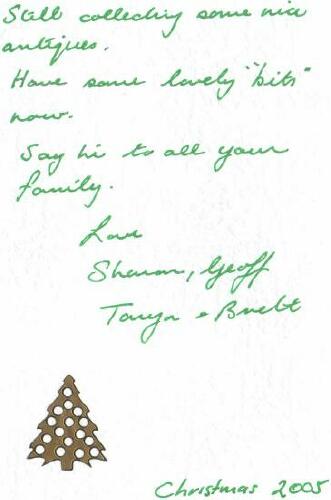 Still collecting some nice
antiques.
Have some lovely "bits"
now.
Say hi to all your
family.
Love
Sharon, Geoff
Tanya & Brett
Christmas 2005